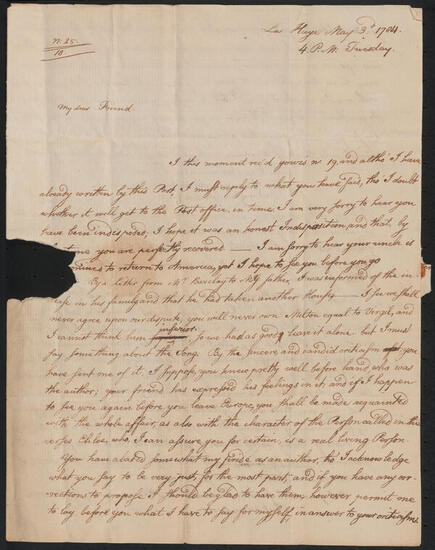 N. 25.
10
La Haye May 3d. 1784.
4. P.M. Tuesday.
My dear Friend
I this moment rec'd yours n 19, and altho' I have
already written by this Post I must reply to what you have said, tho' I doubt
whether it will get to the Post office in time. I am very sorry to hear you
have been indisposed; I hope it was an honest Indisposition, and that, by
time you are perfectly recovered — I am sorry to hear your uncle is
to return to America, yet I hope to see you before you go
By a letter from Mr. Barclay to My father, I was informed of the in-
in his family, and that he had taken another House — I see we shall
never agree upon our dispute, you will never own Milton equal to Virgil, and
I cannot think him inferior. so we had as good leave it alone. but I must
say something about the Song. By the sincere and candid criticism you
have sent me of it, I suppose you knew pretty well before hand, who was
the author; your friend has expressed his feelings in it, and if I happen
to see you again before you leave Europe, you shall be made acquainted
with the whole affair, as also with the character of the Person called in the
verses Chloe, who, I can assure you for certain, is a real living Person.
You have abated somewhat my pride as an author, tho' I acknowledge
what you say to be very just, for the most part, and if you have any cor-
rections to propose I should be glad to have them, however permit me
to lay before you what I have to say for myself, in answer to your criticisms.